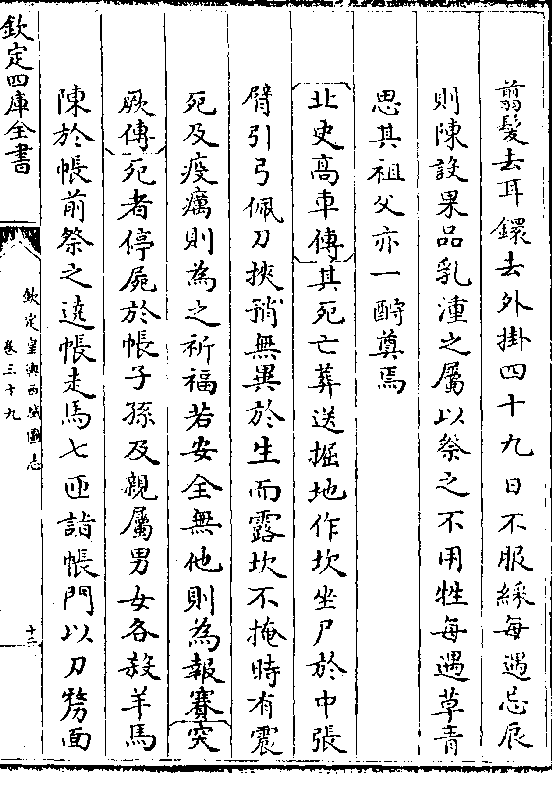 翦髮去耳鐶去外掛四十九日不服綵每遇忌辰
則陳設果品乳湩之屬以祭之不用牲每遇草青
思其祖父亦一酹奠焉
北史髙車傳其死亡葬送掘地作坎坐尸於中張
臂引弓佩刀挾矟無異於生而露坎不掩時有震
死及疫癘則為之祈福若安全無他則為報賽突
厥傳死者停屍於帳子孫及親屬男女各殺羊馬
陳於帳前祭之遶帳走馬七匝詣帳門以刀剺面
欽定四庫全書
欽定皇輿西域圖志
卷三十九
十二